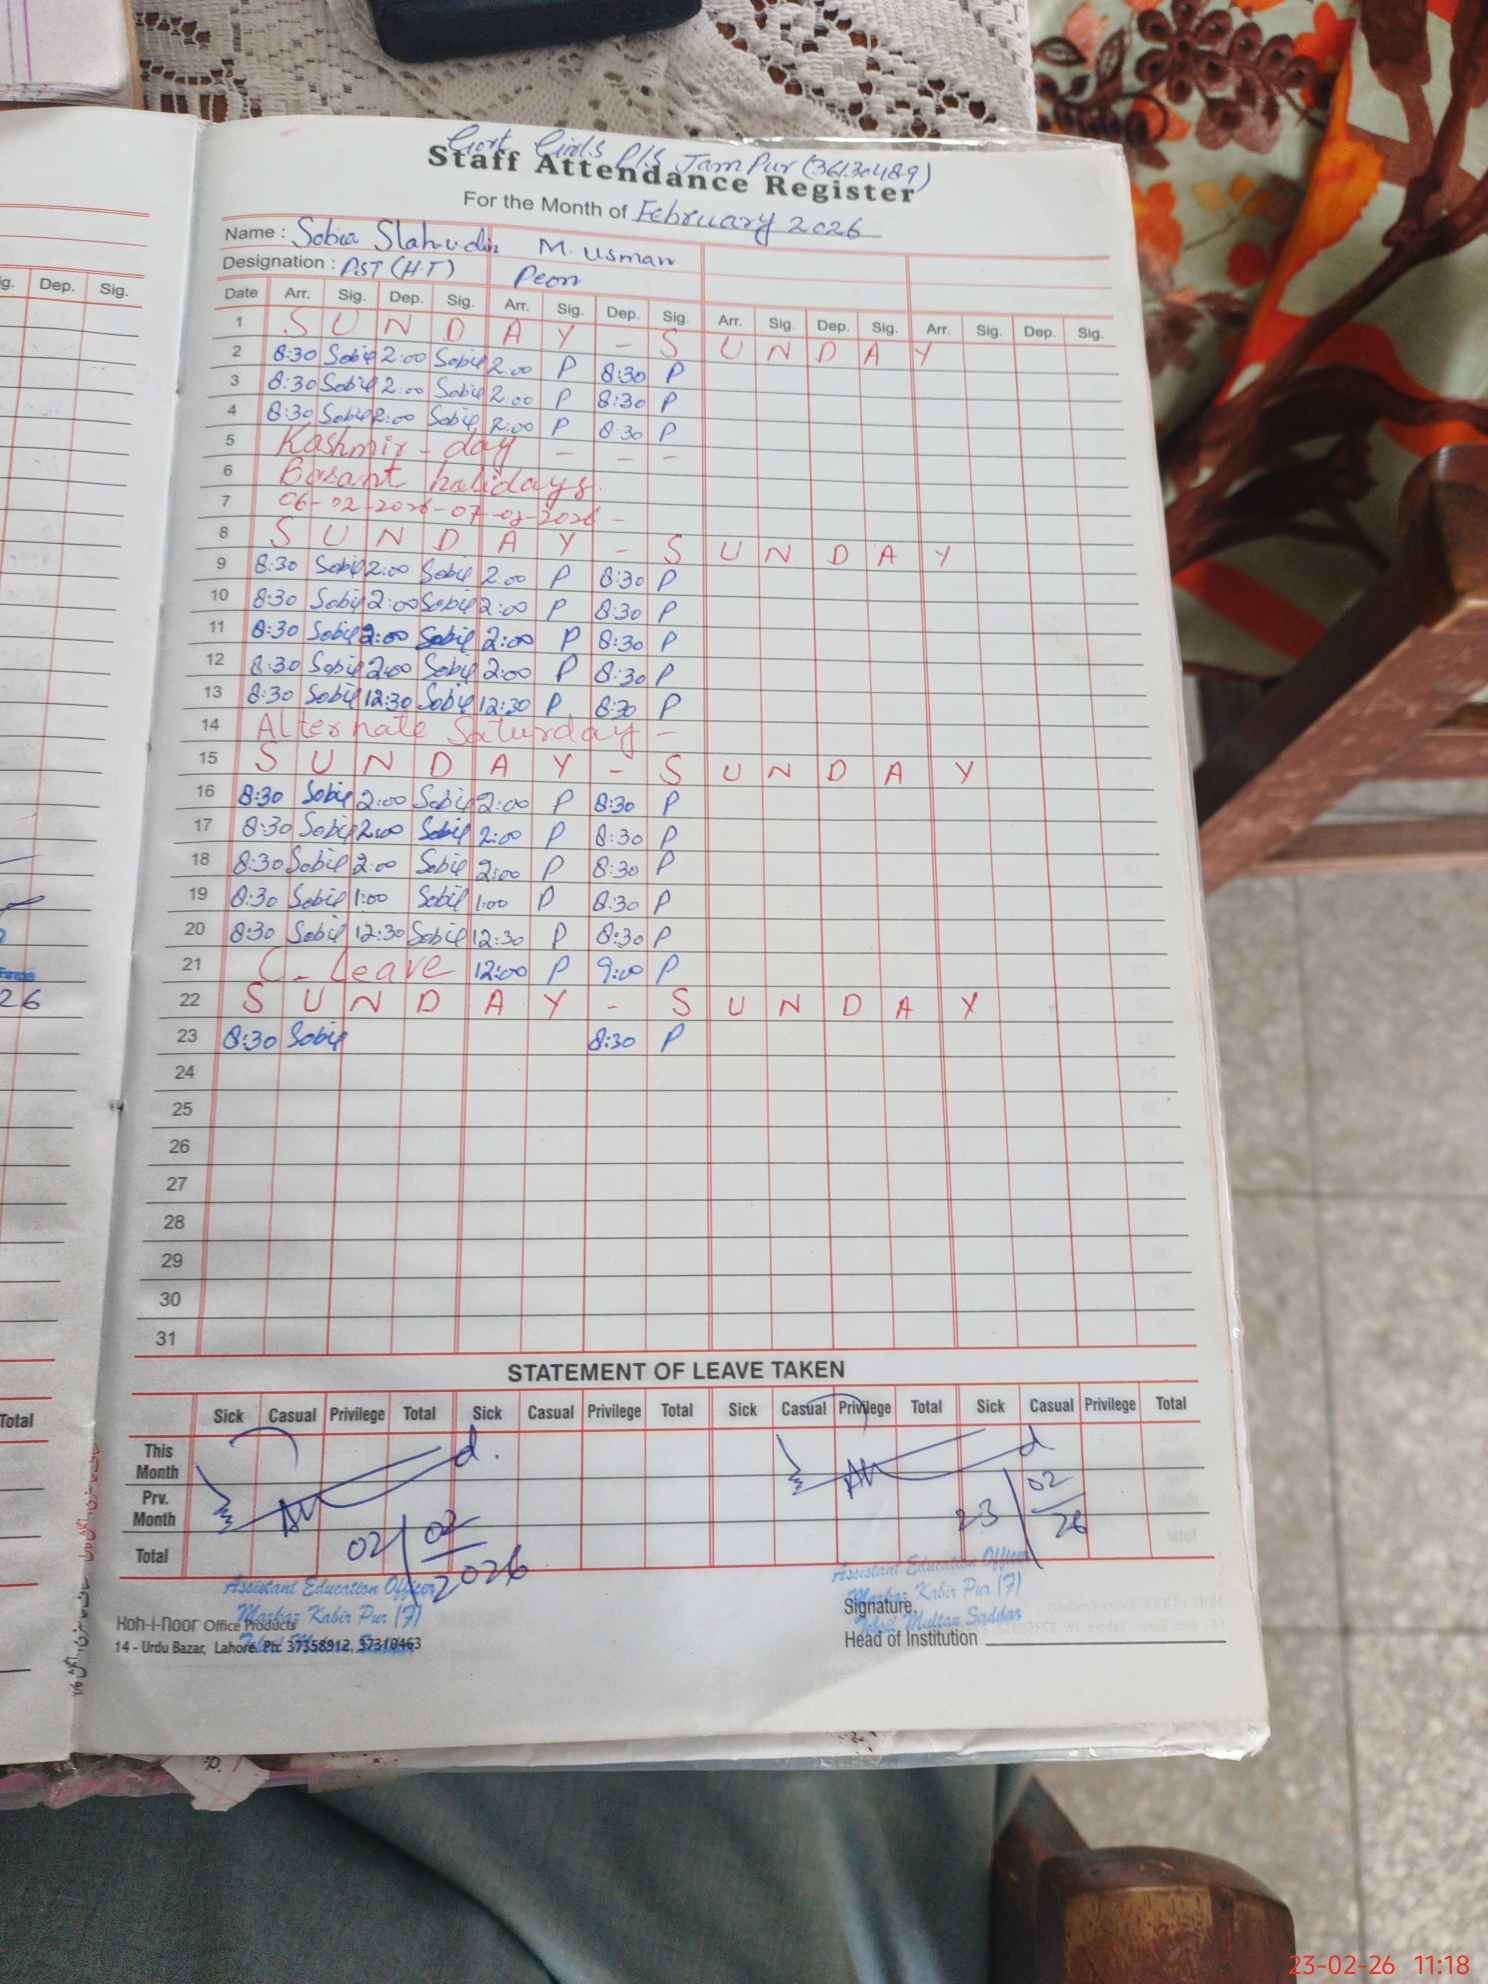 Govt Girls P/S Jam Pur (36130489)
Staff Attendance Register
For the Month of February 2026
Name : Sobia Slahudin M. Usman
Designation : PST (H.T) Peon
ig. Dep. Sig.
Date Arr. Sig. Dep. Sig. Arr. Sig. Dep. Sig. Arr. Sig. Dep. Sig. Arr. Sig. Dep. Sig.
1 S U N D A Y - S U N D A Y
2 8:30 Sobia 2:00 Sobia 2:00 P 8:30 P
3 8:30 Sobia 2:00 Sobia 2:00 P 8:30 P
4 8:30 Sobia 2:00 Sobia 2:00 P 8:30 P
5 Kashmir - day - - -
6 Basant holidays.
7 06-02-2026-07-02-2026 -
8 S U N D A Y - S U N D A Y
9 8:30 Sobia 2:00 Sobia 2:00 P 8:30 P
10 8:30 Sobia 2:00 Sobia 2:00 P 8:30 P
11 8:30 Sobia 2:00 Sobia 2:00 P 8:30 P
12 8:30 Sobia 2:00 Sobia 2:00 P 8:30 P
13 8:30 Sobia 12:30 Sobia 12:30 P 8:30 P
14 Alternate Saturday -
15 S U N D A Y - S U N D A Y
16 8:30 Sobia 2:00 Sobia 2:00 P 8:30 P
17 8:30 Sobia 2:00 Sobia 2:00 P 8:30 P
18 8:30 Sobia 2:00 Sobia 2:00 P 8:30 P
19 8:30 Sobia 1:00 Sobia 1:00 P 8:30 P
20 8:30 Sobia 12:30 Sobia 12:30 P 8:30 P
21 C - Leave 12:00 P 9:00 P
22 S U N D A Y - S U N D A Y
26
23 8:30 Sobia 8:30 P
24
25
26
27
28
29
30
31
STATEMENT OF LEAVE TAKEN
Total Sick Casual Privilege Total Sick Casual Privilege Total Sick Casual Privilege Total Sick Casual Privilege Total
This Month
Prv. Month
Total
02/02/2026
23/02/26
Assistant Education Officer
Markaz Kabir Pur (F)
Assistant Education Officer
Markaz Kabir Pur (F)
Tehsil Multan Saddar
Koh-i-noor Office Products
14 - Urdu Bazar, Lahore. Ph: 37358912, 37310463
Signature,
Head of Institution
23-02-26 11:18